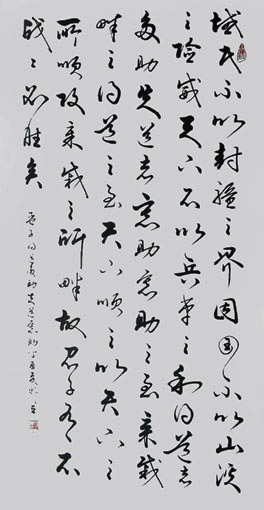 域民不以封疆之界固国不以山溪
之险威天下不以兵革之利得道者
多助失道者寡助寡助之至亲戚
畔之得道之至天下顺之以天下之
所顺攻亲戚之所畔故君子有不
战々必胜矣
孟子得道多助失道寡助